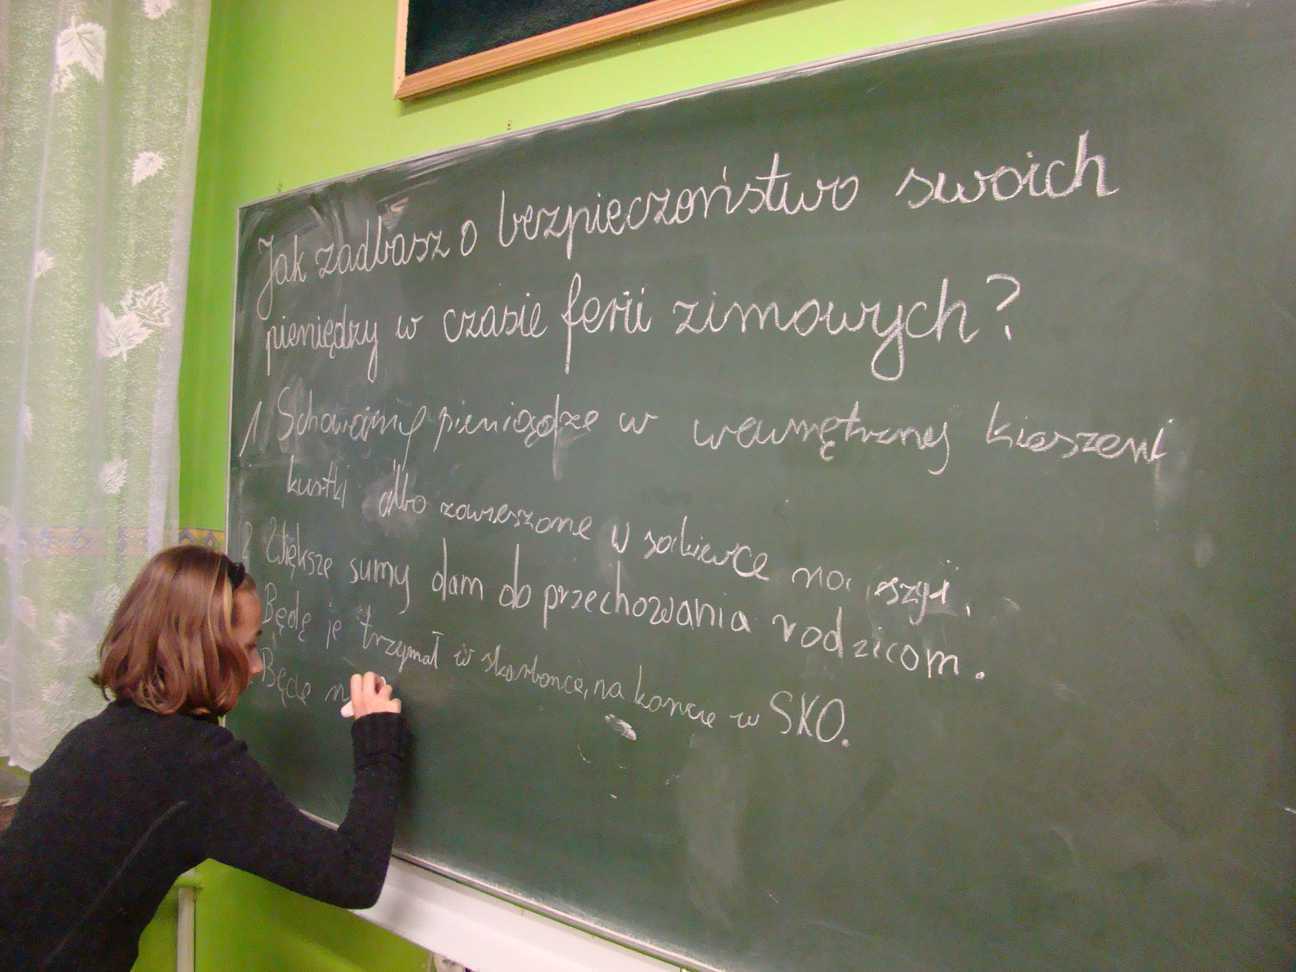 Jak zadbasz o bezpieczeństwo swoich
pieniędzy w czasie ferii zimowych?
1 pieniądze w wewnętrznej kieszeni
kurtki albo zawieszone w sakiewce na szyi.
2 Większe sumy dam do przechowania rodzicom.
Będę je trzymał w skarbonce, na koncie w SKO.
Będę n